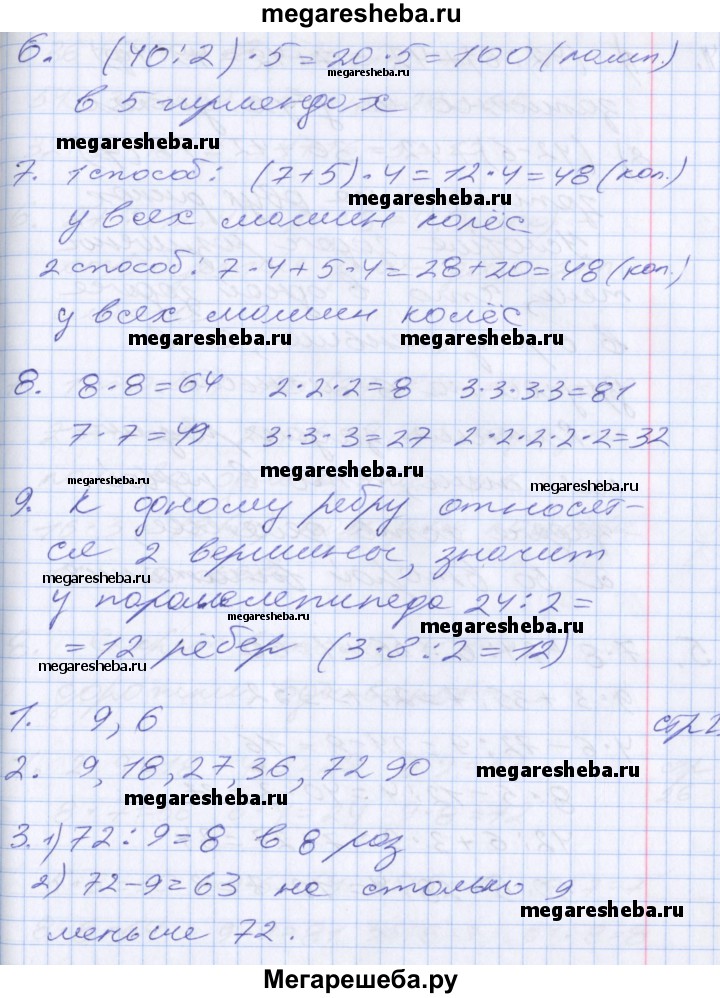 megaresheba.ru
6. (40:2)·5=20·5=100 (ламп.)
megaresheba.ru
в 5 гирляндах
megaresheba.ru
7. 1 способ: (7+5)·4=12·4=48 (кол.)
megaresheba.ru
у всех машин колёс
2 способ: 7·4+5·4=28+20=48 (кол.)
у всех машин колёс
megaresheba.ru megaresheba.ru
8. 8·8=64 2·2·2=8 3·3·3·3=81
7·7=49 3·3·3=27 2·2·2·2·2=32
megaresheba.ru megaresheba.ru megaresheba.ru
9. К одному ребру относят-
ся 2 вершины, значит
megaresheba.ru
у параллелепипеда 24:2=
megaresheba.ru
=12 рёбер (3·8:2=12)
megaresheba.ru
1. 9, 6 стр
2. 9, 18, 27, 36, 72 90 megaresheba.ru
megaresheba.ru
3. 1) 72:9=8 в 8 раз
2) 72-9=63 на столько 9
megaresheba.ru
меньше 72.
Мегарешеба.ру